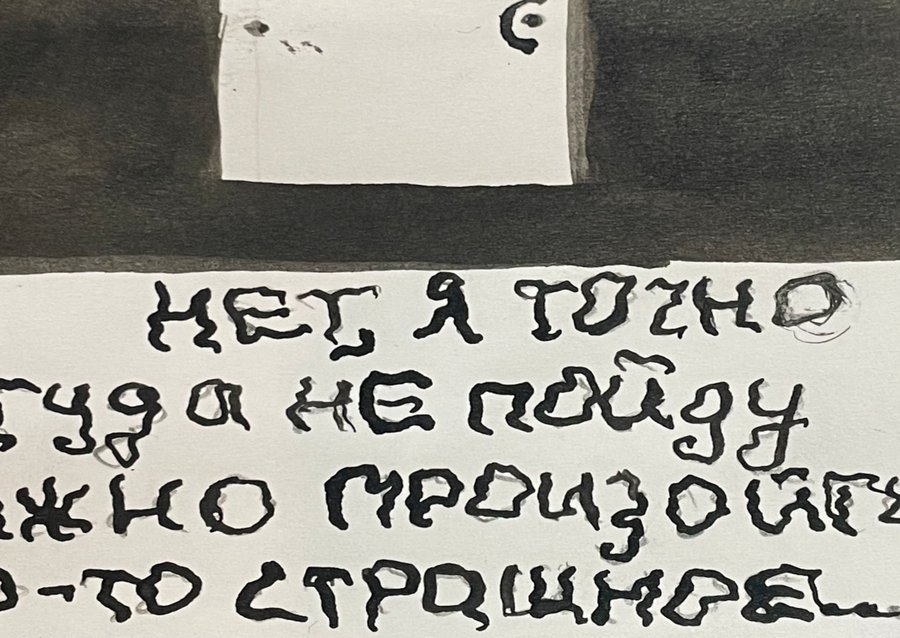 НЕТ, Я ТОЧНО
туда НЕ пойду
жно произойт
о-то страшное...